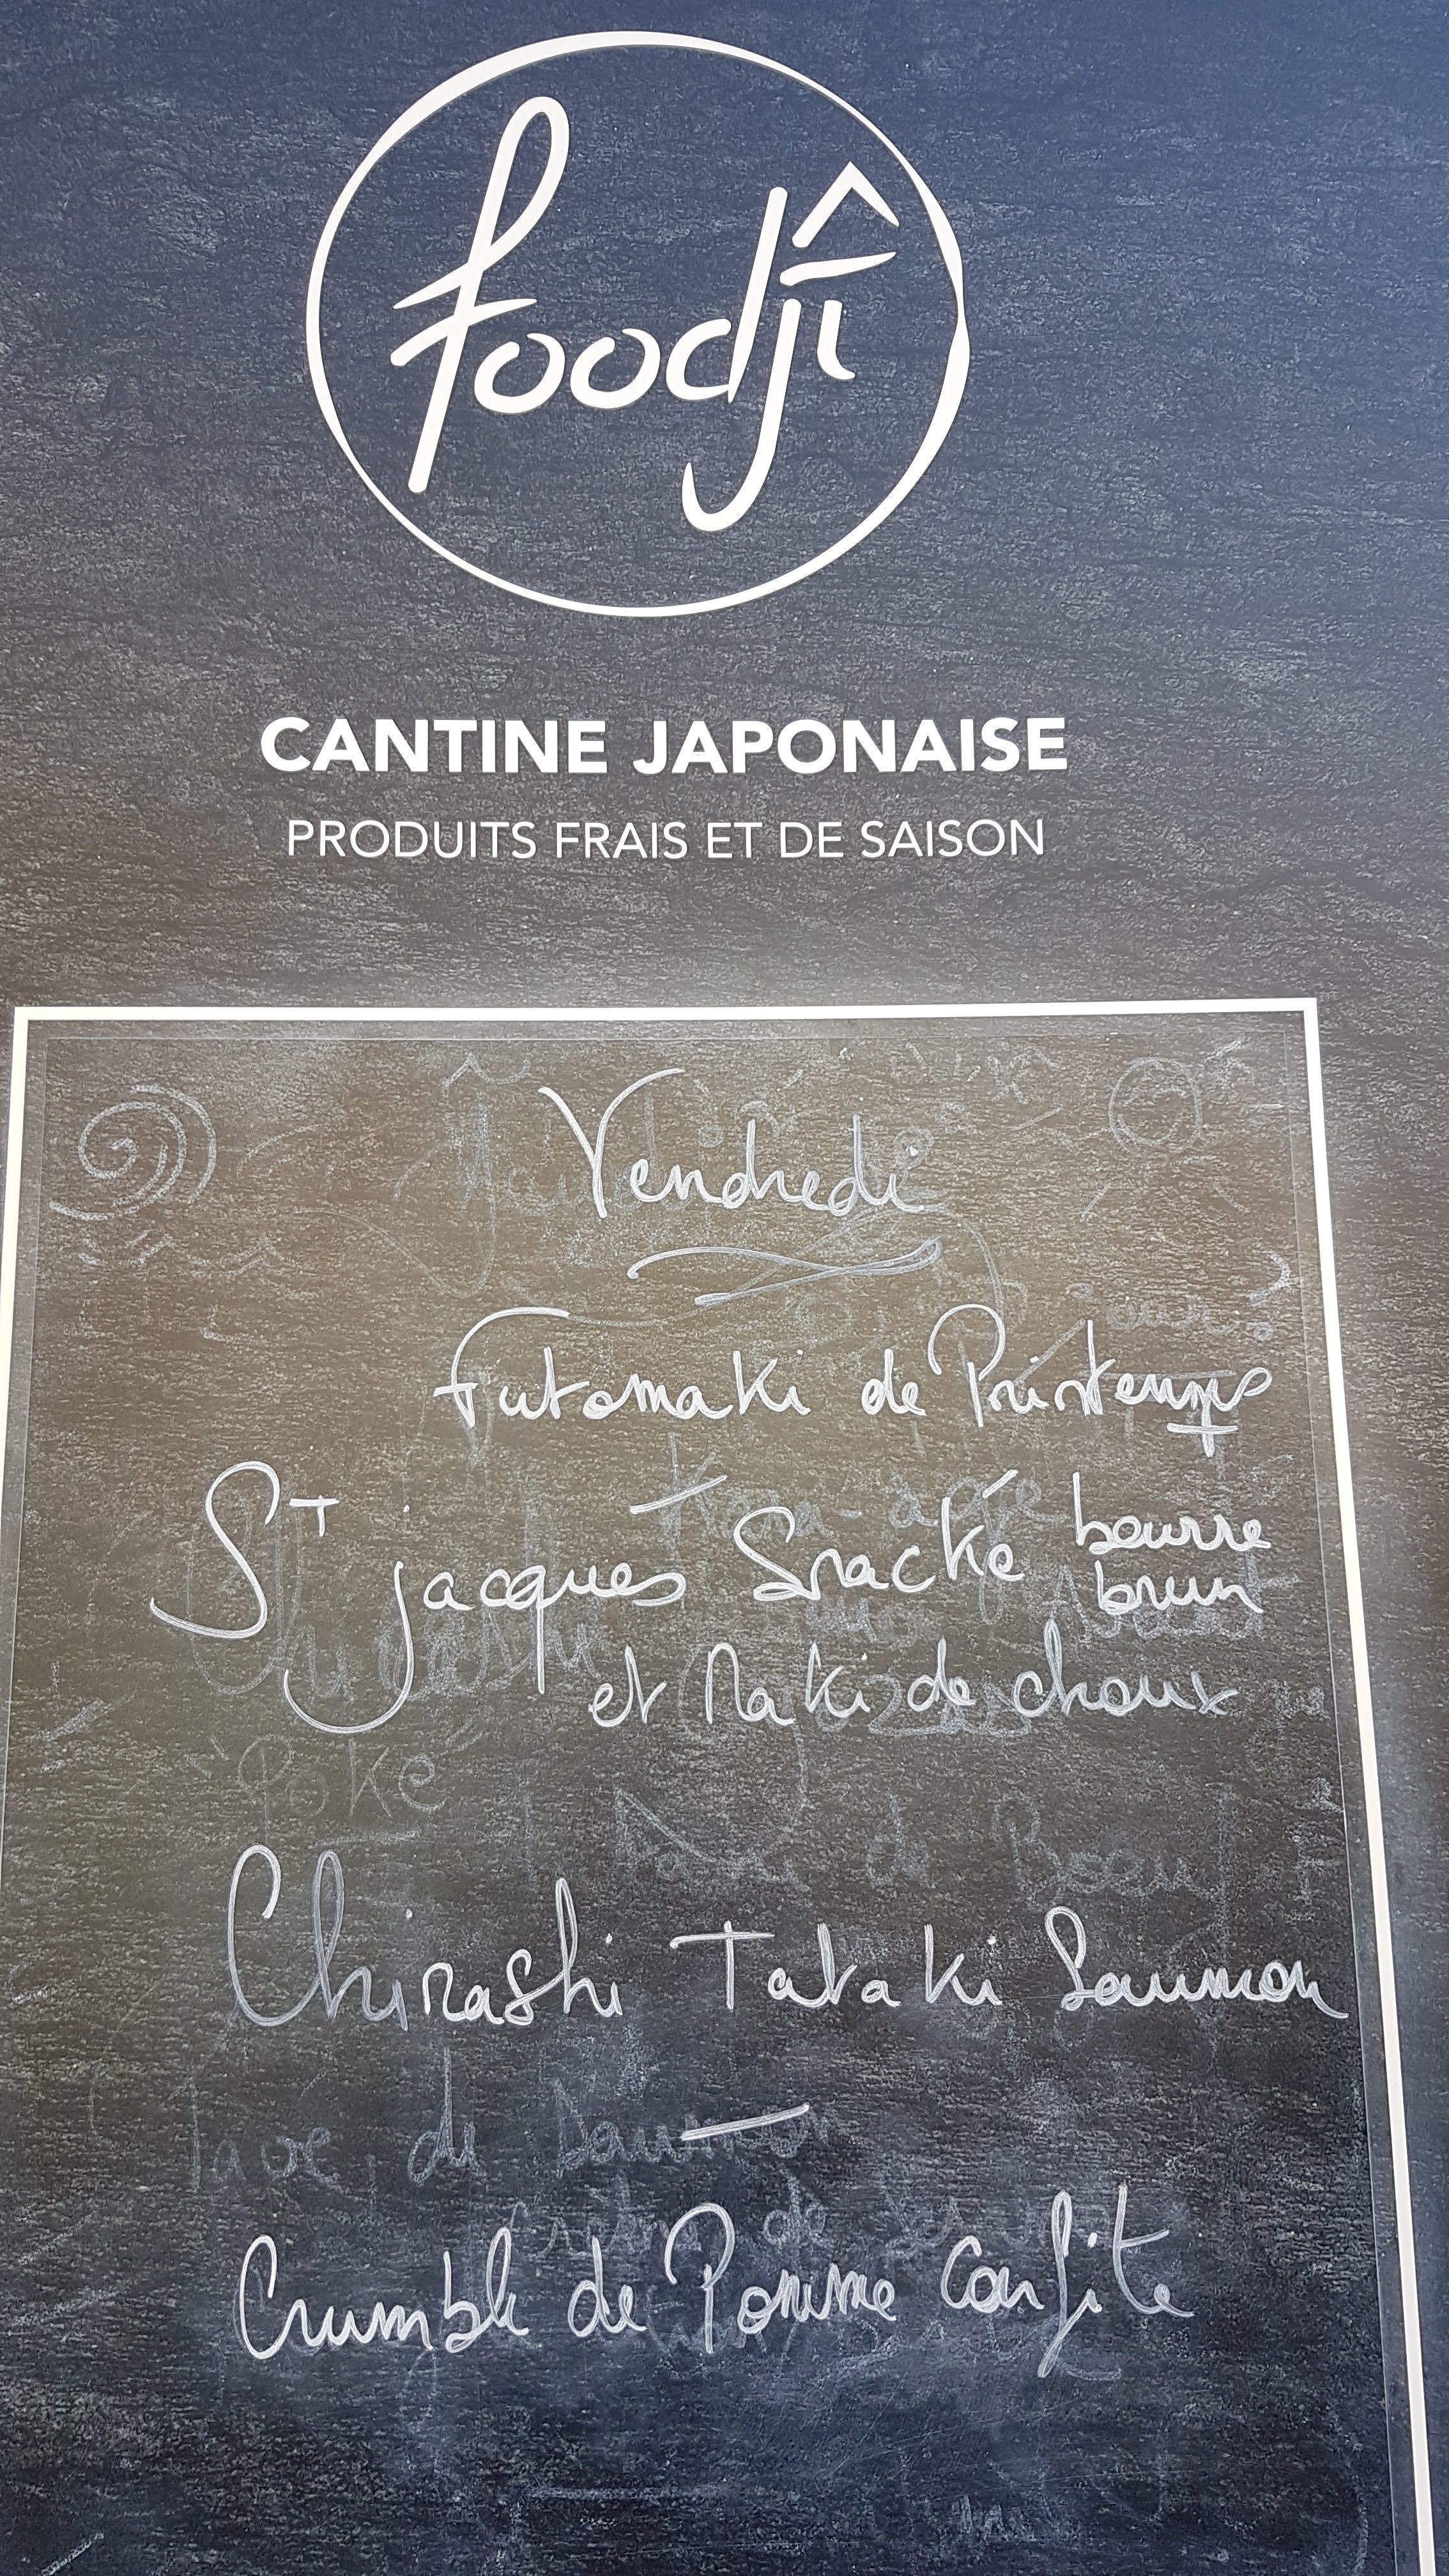 foodjî
CANTINE JAPONAISE
PRODUITS FRAIS ET DE SAISON
Vendredi
Futomaki de Printemps
St jacques Snacké beurre
brun
et Maki de choux
"Poké"
Chirashi Tataki Saumon
de Saumon
Crumble de Pomme Confite